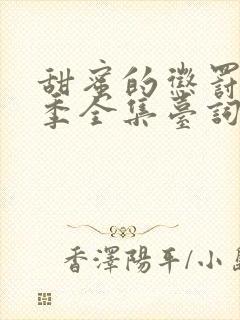 甜蜜的懲罰
季全集臺詞
香澤陽平/小島